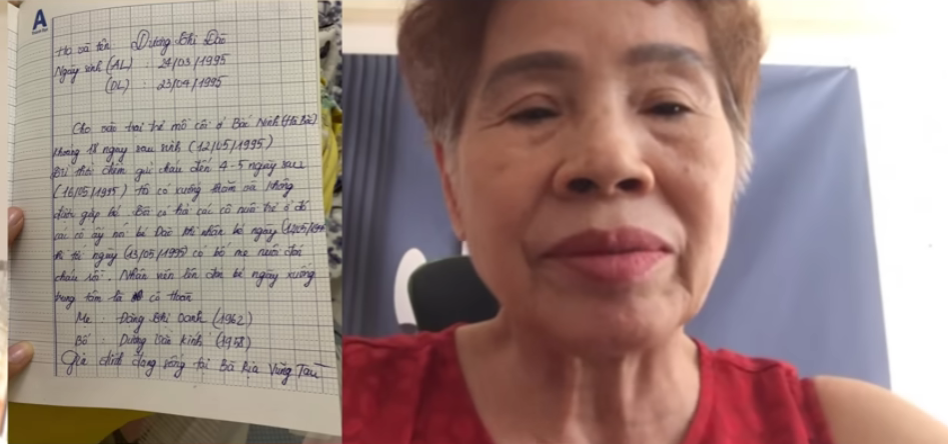 A
Họ và tên : Dương Thị Đào
Ngày sinh (AL) : 24/03/1995
(DL) : 23/04/1995
Cho vào trại trẻ mồ côi ở Bắc Ninh (Hà Bắc)
khoảng 18 ngày sau sinh (12/05/1995)
thời điểm gửi cháu đến 4-5 ngày sau
(16/05/1995) tôi có xuống thăm và không
được gặp bé. Bà cả hà các cô nuôi trẻ ở đó
các cô ấy nói bé Đào khi nhận bé ngày
thì tới ngày (13/05/1995) có bố mẹ nuôi đón
cháu rồi. Nhân viên lên đón bé ngày xuống
trung tâm là cô Thoan
Mẹ : Đặng Thị Oanh (1962)
Bố : Dương Văn Kính (1958)
Gia đình đang sống tại Bà Rịa Vũng Tàu